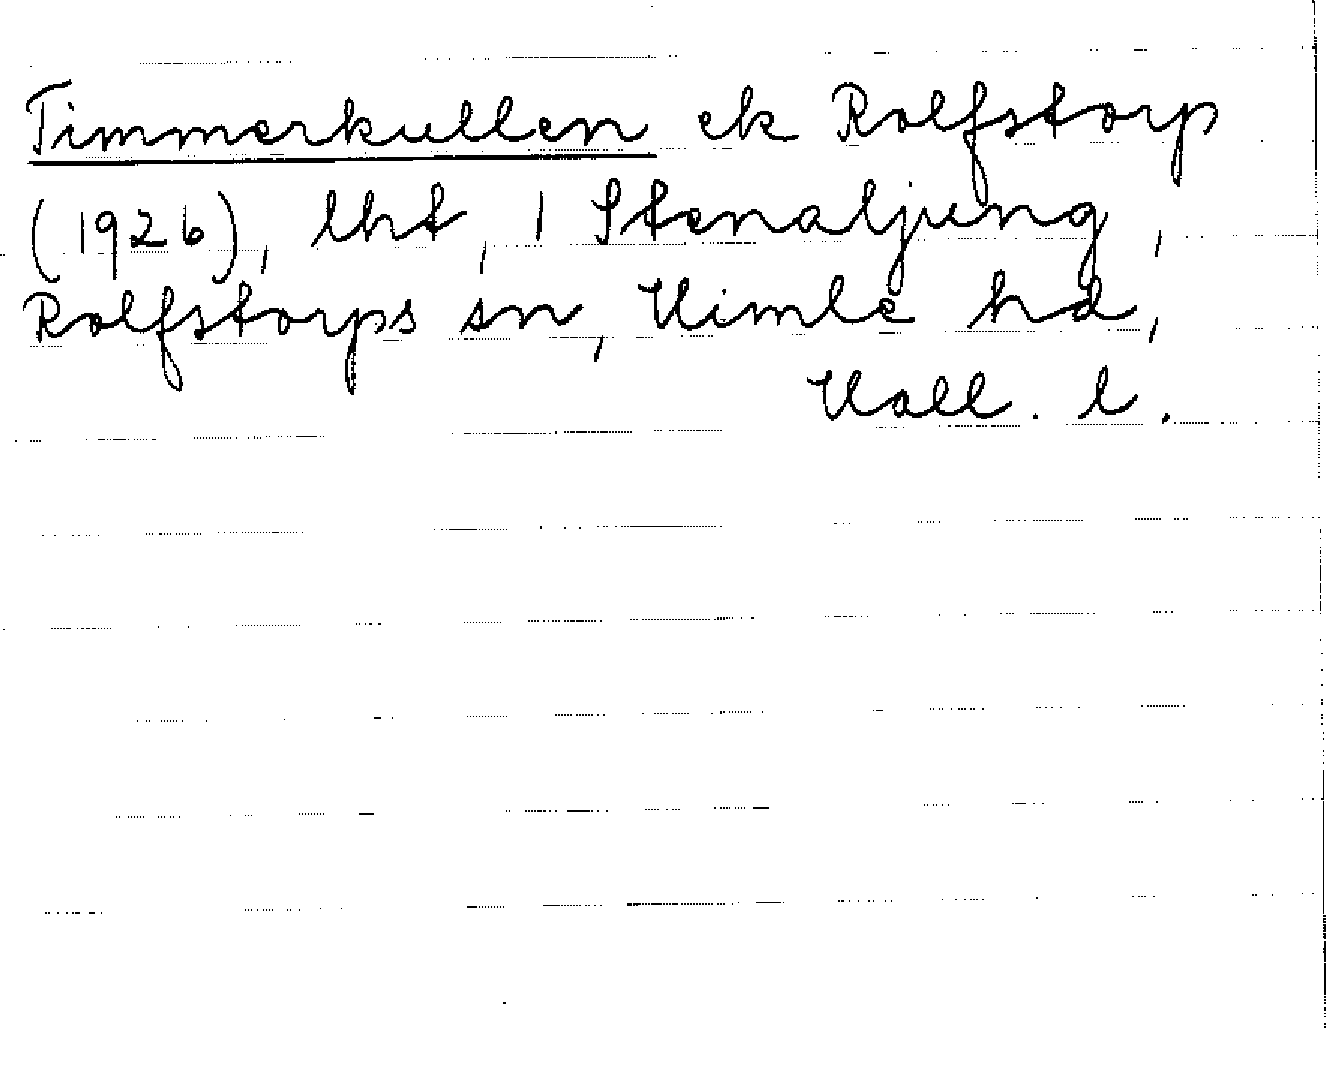 Timmerkullen ek Rolfstorp
(1926), lht, 1 Stenaljung,
Rolfstorps sn, Himle hd,
Hall. l.